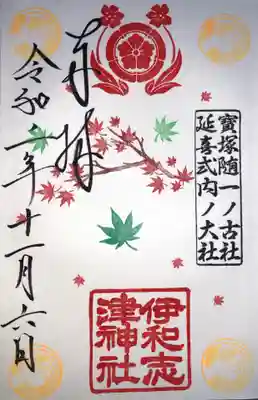 寶塚随一ノ古社
延喜式内ノ大社
奉拝
伊和志
津神社
令和二年十一月六日